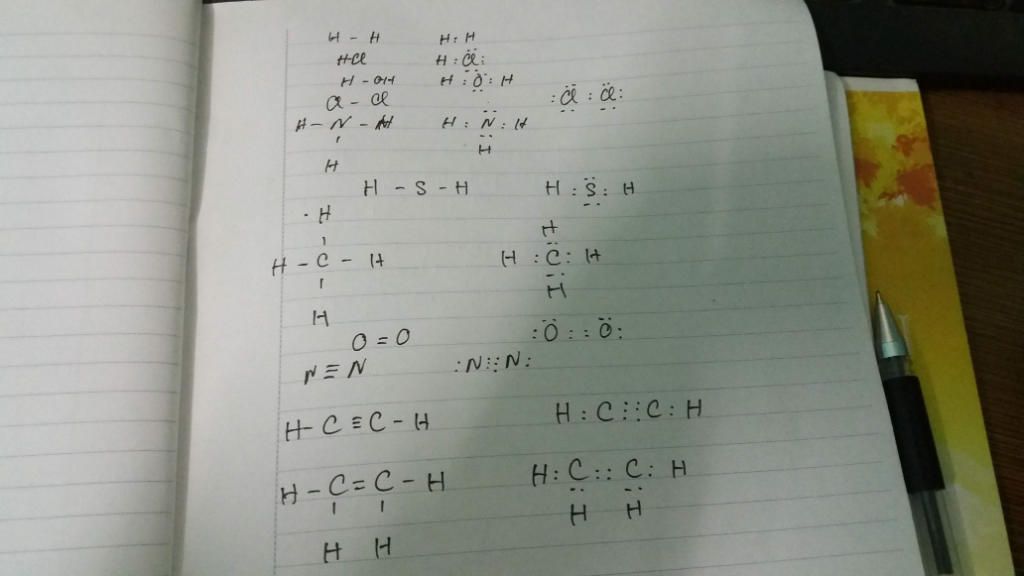 H - H H : H
HCl H : Cl :
H - OH H : O : H
Cl - Cl : Cl : Cl :
H - N - H H : N : H
H H
H - S - H H : S : H
H H
H - C - H H : C : H
H H
O = O : O : : O :
N ≡ N : N ⋮⋮ N :
H - C ≡ C - H H : C ⋮⋮ C : H
H - C = C - H H : C : : C : H
H H H H